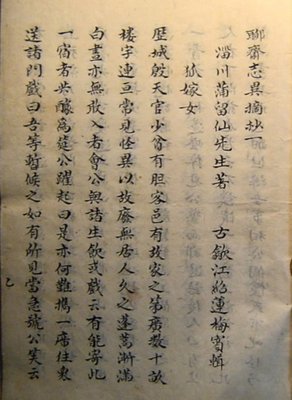 聊齋志異摘抄
淄川蒲留仙先生著 古歙江紹蓮梅賓輯
狐嫁女
歷城殷天官少貧有胆客邑有故家之第廣數十畝
樓宇連亘常見怪異以故廢無居人久之蓬蒿漸滿
白晝亦無敢入者會公與諸生飲或戲云有能寄此
一宿者共醵爲筵公躍起曰是亦何難攜一席往衆
送諸門戲曰吾等暫候之如有所見當急號公笑云